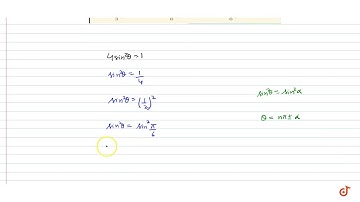 4sin²θ=1
sin²θ = 1/4
sin²θ = (1/2)²
sin²θ = sin² π/6
sin²θ = sin²α
θ = nπ ± α
doubtnut